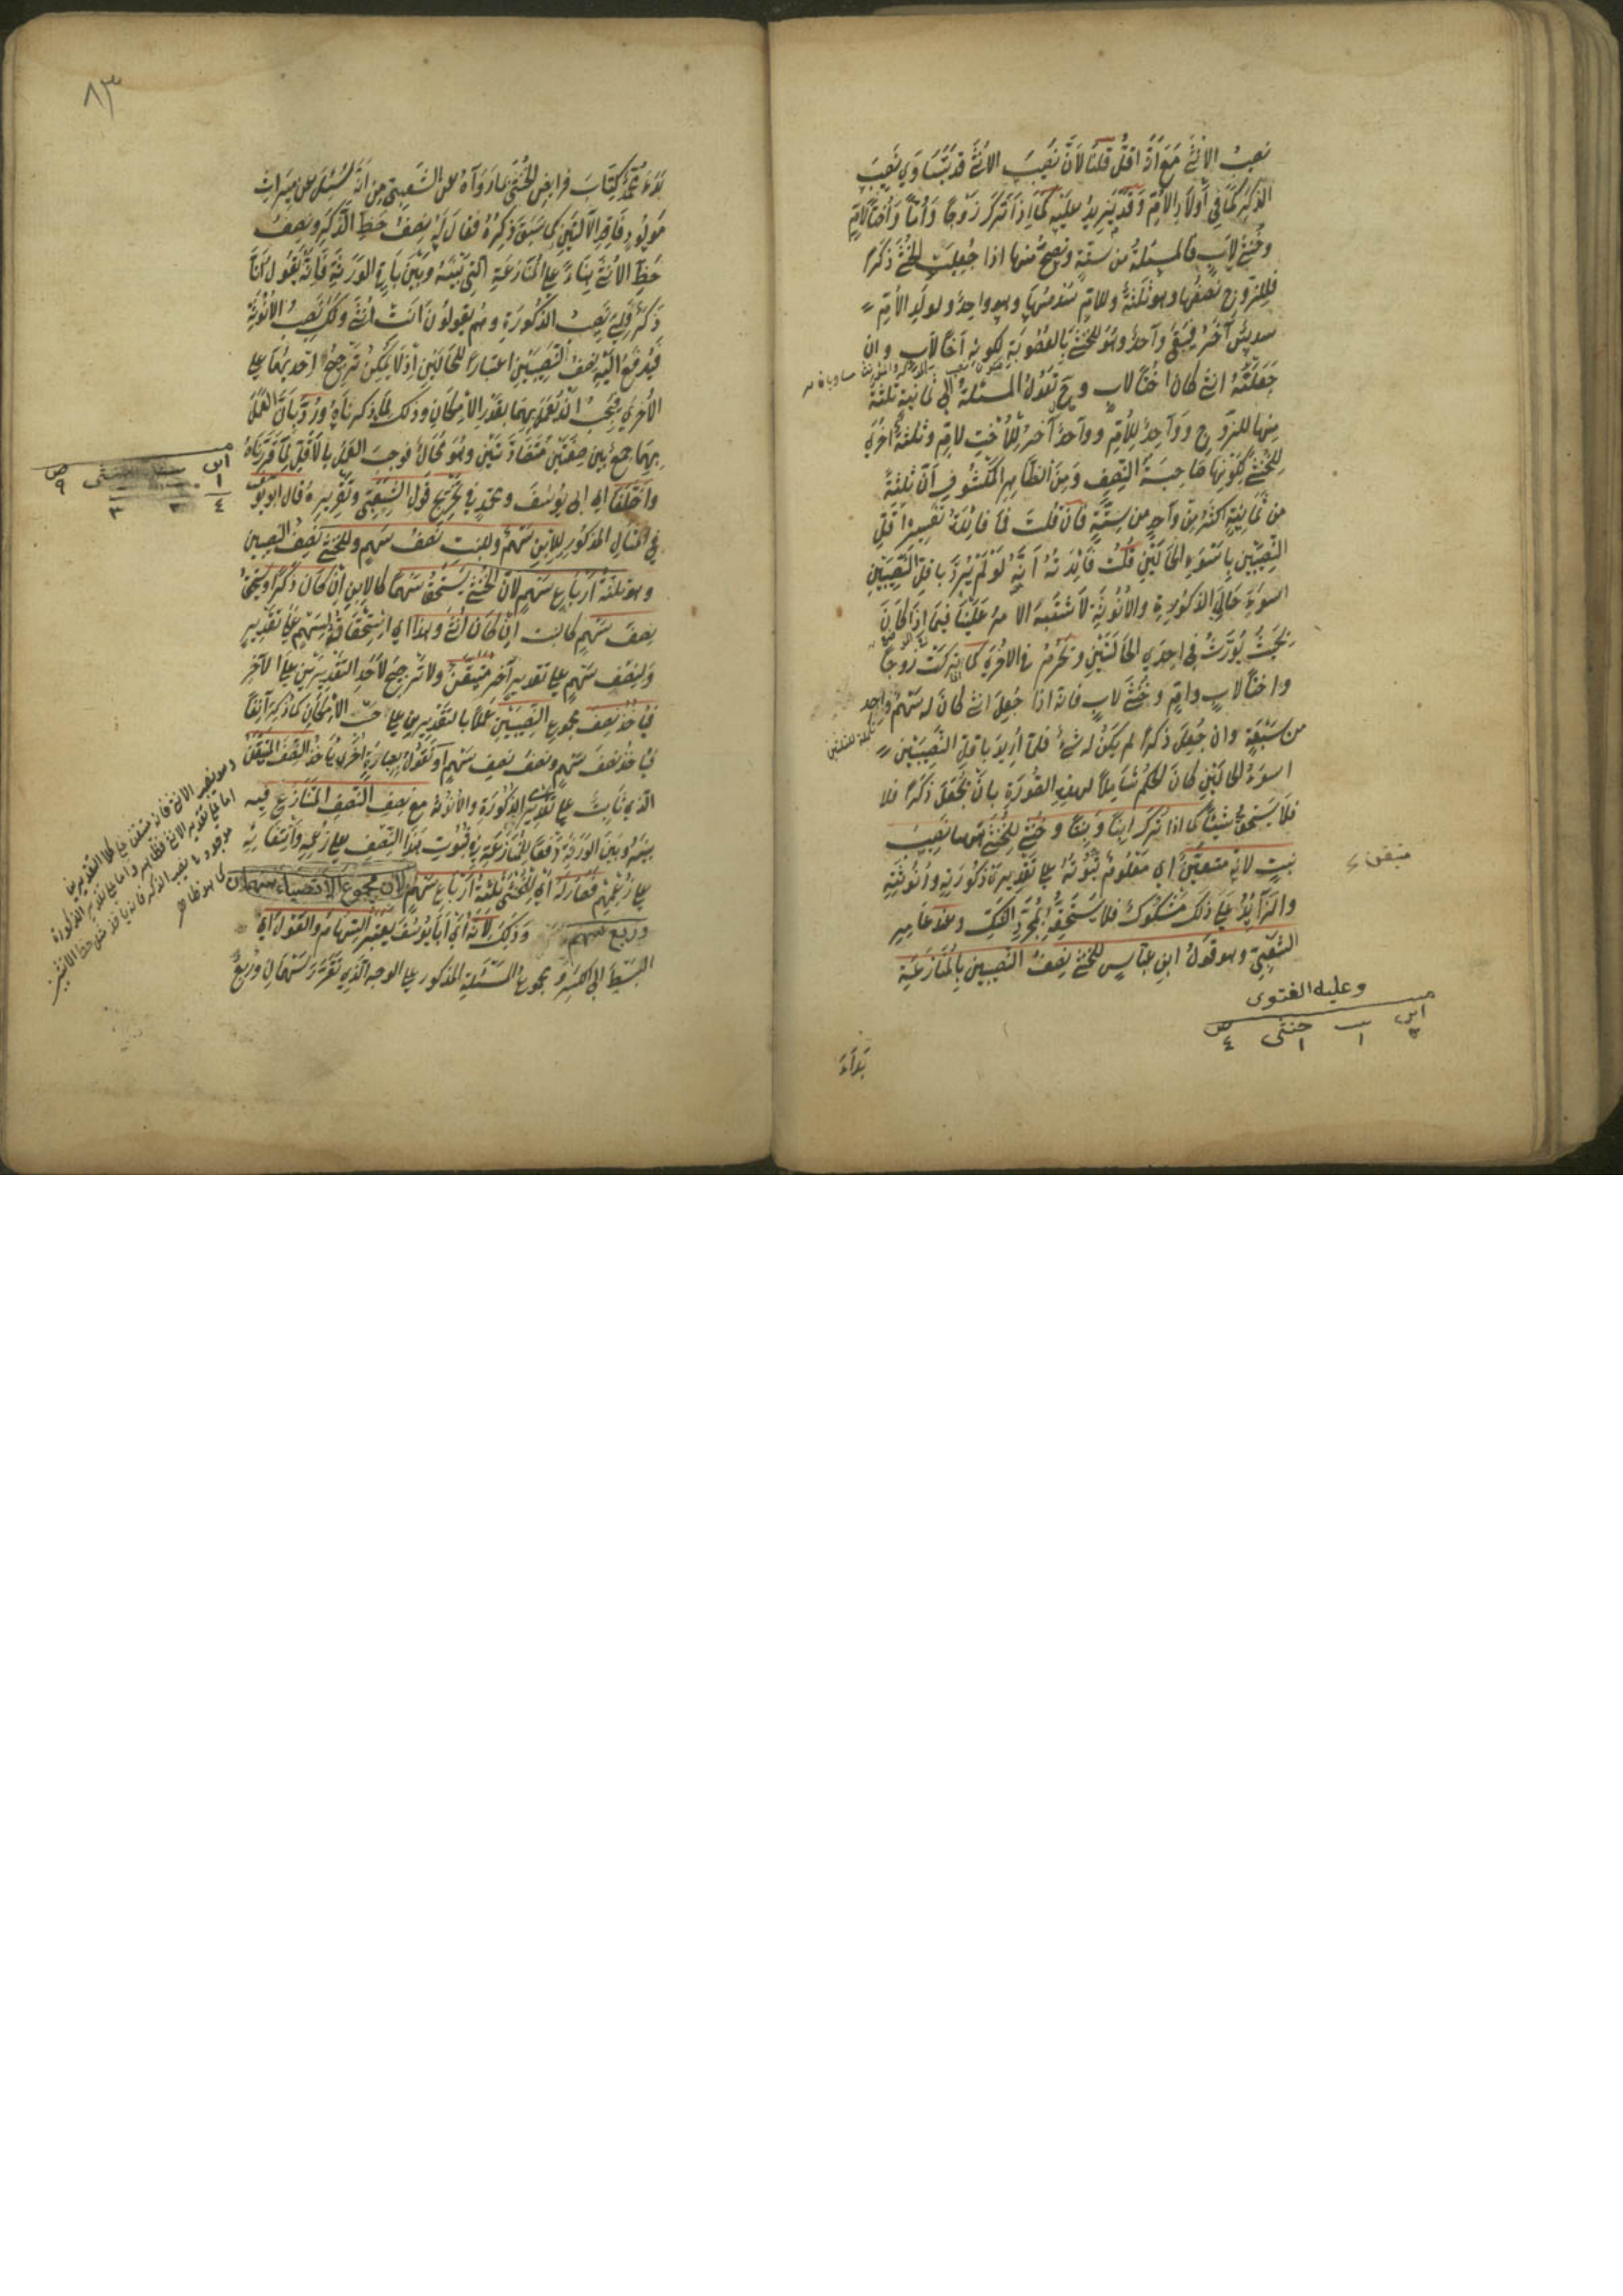 نصيب الانثى مع انه اقل قلنا لان نصيب الانثى قد يتساوى نصيب
الذكر كما في اولاد الام وقد يزيد عليه كما اذا ترك زوجا واما واختا لام
وخنثى لاب فالمسئلة من ستة وتصح منها اذا جعلت الخنثى ذكرا
فللزوج نصفها وهو ثلثة وللام سدسها وهو واحد ولولد الام
سدس آخر فيبقى واحد وهو للخنثى بالعصوبة لكونه اخا لاب وان
جعلته انثى كان اختا لاب وح تعول المسئلة الى ثمانية ثلثة
منها للزوج وواحد للام وواحد آخر للاخت لام وثلثة اخرى
للخنثى لكونها صاحبة النصف ومن الظاهر المكشوف ان ثلثة
من ثمانية اكثر من واحد من ستة فان قلت فما فائدة تفسير اقل
النصيبين باسوء الحالتين قلت فائدته انه لو لم يرد باقل النصيبين
اسوء حالي الذكورة والانوثة لاشتبه الامر علينا فيما اذا كان
بحيث يورث في احدى الحالتين ويحرم في الاخرى كما ان تركت زوجا
واختا لاب وام وخنثى لاب فانه اذا جعل انثى كان له سهم واحد
من سبعة وان جعل ذكرا لم يكن له شئ فلما اريد باقل النصيبين
اسوء الحالتين كان الحكم شاملا لهذه الصورة بان يجعل ذكرا فلا
فلا يستحق شيئا كما اذا ترك ابنا وبنتا وخنثى للخنثى نصيب
بنت لانه متيقن اي معلوم ثبوته على تقدير ذكورته وانوثته
والزائد على ذلك مشكوك فلا يستحقه لمجرد الشك وعند عامر
الشعبي وهو قول ابن عباس للخنثى نصف النصيبين بالمنازعة
وعليه الفتوى
ابن بنت خنثى
١ ١ ٤
متيقن
تكملة للثلثين
بدأ
٨٣
بدأ محمد كتاب فرائض الخنثى بما رواه عن الشعبي من انه سئل عن ميراث
مولود فاقد الآلتين كما سبق ذكره فقال له نصف حظ الذكر ونصف
حظ الانثى بناء على المنازعة التي بينه وبين باقي الورثة فانه يقول انا
ذكر فلي نصيب الذكورة وهم يقولون انت انثى ولك نصيب الانوثة
فيدفع اليه نصف النصيبين اعتبارا للحالتين اذ لا يمكن ترجيح احديهما على
الاخرى فيجب ان نعمل بهما بقدر الامكان وذلك لما ذكرناه ورد بان العمل
بهما جمع بين صفتين متضادتين وهو محال فوجب العمل بالاقل لما قررناه
واختلفا اي ابي يوسف ومحمد في تخريج قول الشعبي وتقريره قال ابو يوسف
في المثال المذكور للابن سهم وللبنت نصف سهم وللخنثى نصف النصيبين
وهو ثلثة ارباع سهم لان الخنثى يستحق سهما كالابن ان كان ذكرا ويستحق
نصف سهم كالبنت ان كان انثى وهذا اي استحقاقه لسهم على تقدير
ولنصف سهم على تقدير آخر متيقن ولا ترجيح لاحد التقديرين على الآخر
فياخذ نصف مجموع النصيبين عملا بالتقديرين على حسب الامكان كما ذكر آنفا
فياخذ نصف سهم ونصف نصف سهم او نقول بعبارة اخرى ياخذ النصف المتيقن
الذي ثابت على تقدير الذكورة والانوثة مع نصف النصف المتنازع فيه
بينه وبين الورثة دفعا للمنازعة في ثبوت هذا النصف على زعمه وانتفائه
على زعمهم فصار له اي للخنثى ثلثة ارباع سهم لان مجموع الانصباء سهمان
وربع سهم وذلك لانه اي ابا يوسف يعتبر السهام والعول اي
البسط الى الكسر ومجموع المسئلة المذكور على الوجه الذي تقرر سهمان وربع